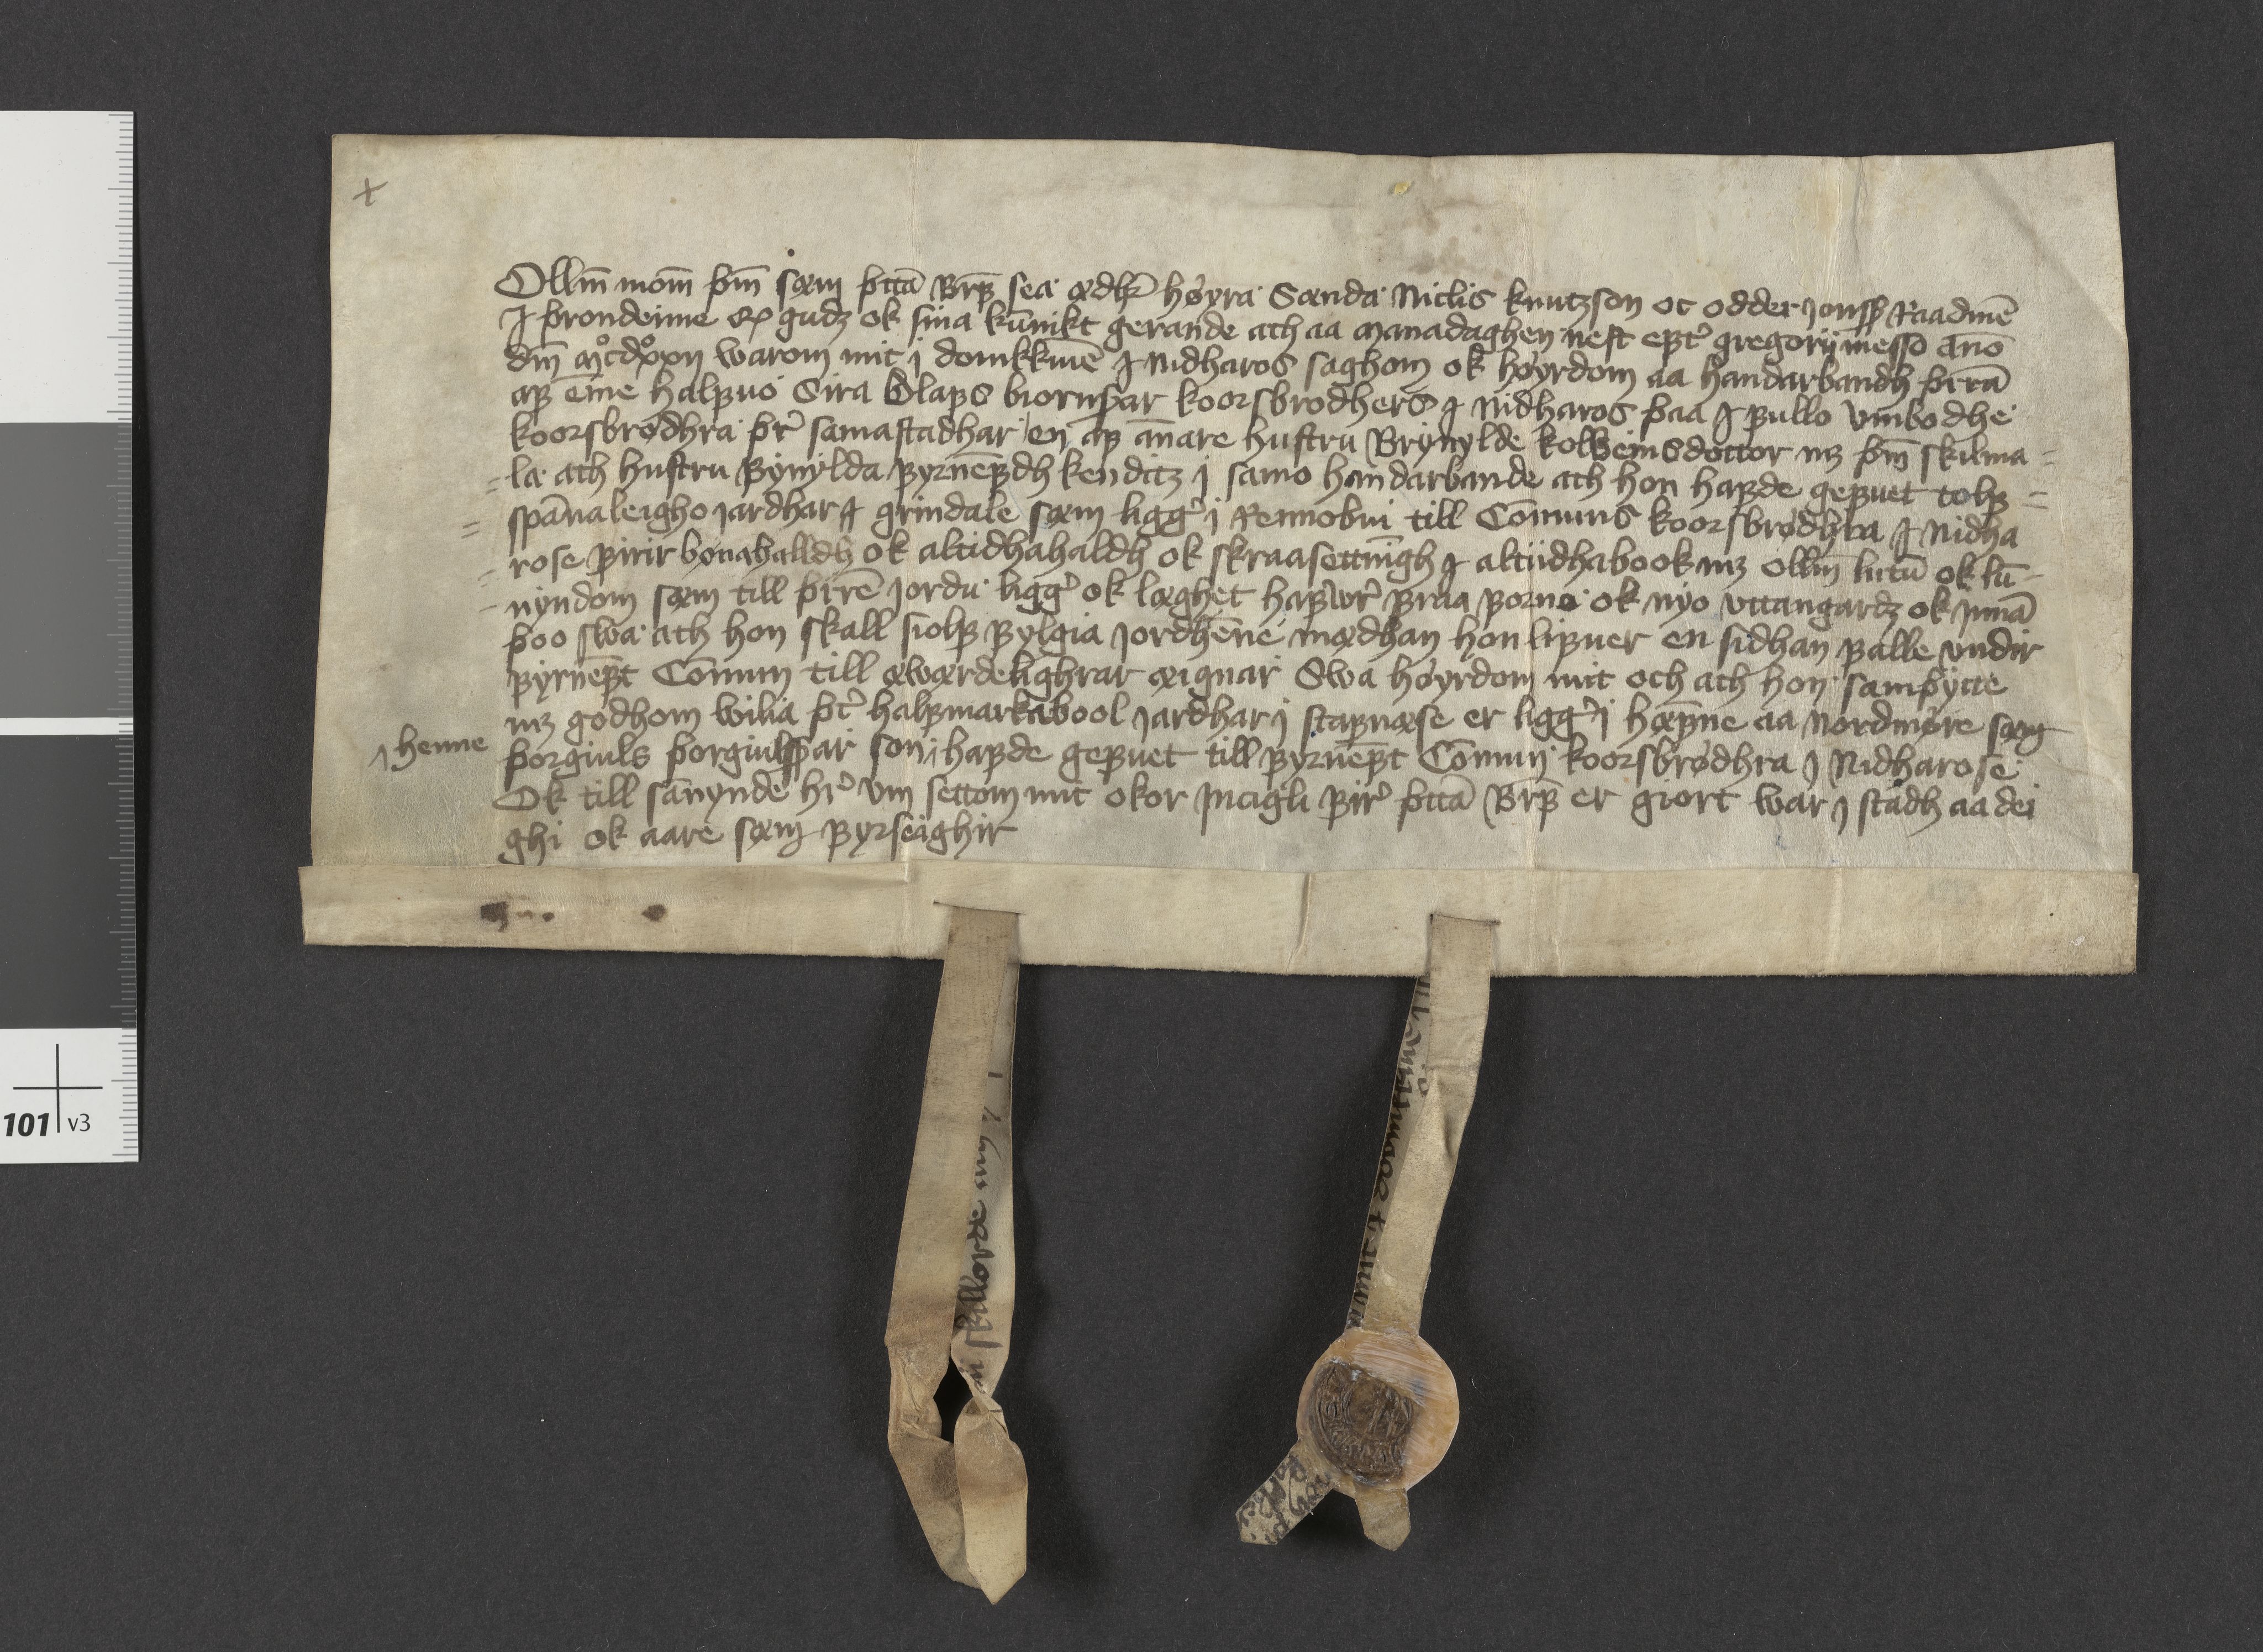 Ollm̄ mōm þm̄ sæm þttā Brꝼ sea ædhꝛ̄ høyra Sænda Niclis knutzson oc odder jonssō Raadmē
I þrondeime Q. gudz ok sina kūnikt gerande ath aa manadaghen nest epꞇ᷑ gregorij messo āno
dm̄ mͦcdͦxxij warom mit j domkkiūē I Nidharos saghom ok høyrdom aa handarbandh þrrā
aꝼ eine halꝼuo Sira Olaꝼs biornssar koorsbrodhers I Nidharos þaa I ꝼullo vmbodhe
koorsbrødhra þr᷑ samastadhar en aꝼ ānare hustru Brynylde kolbeinsdottor mz þm̄ skilma =
= la ath hustru Bynylda ꝼyrnēꝼdh kenditz j samo handarbande ath hon haꝼde geꝼuet tolꝼ =
= spānaleigho jardhar I grindale sæm ligg᷑ j Rennobui till Comuns koorsbrødhra I Nidha
= rose ꝼirir bønahalldh ok altidhahaldh ok skraasettnīgh I altiidhabook mz ollm̄ lutū ok lū =
= nyndom sæm till þrrē jordu ligg᷑ ok læghet haꝼw᷑ ꝼraa ꝼorno ok nyo vttangardz ok innā
þoo swa ath hon skall siolꝼ ꝼylgia jordhēne mædhan hon liꝼuer en sidhan ꝼalle vndir
ꝼyrnēꝼt Comun till æwærdelighrar æignar Swa høyrdom mit och ath hon samþytte
mz godhom wilia þt᷑ halꝼmarkabool jardhar j staꝼnæse er ligg᷑ j hæꝼne aa Nordmøre sæm
henne þorgiuls þorgiulssar son haꝼde geꝼuet till ꝼyrnēꝼt Comun koorsbrødhra j Nidharose
Ok till sānynde hr᷑ vm settom mit okor Incigli ꝼir᷑ þttā Brꝼ er giort war j stadh aa dei
ghi ok aare sæm ꝼyrseighir
skillorde
101 v3